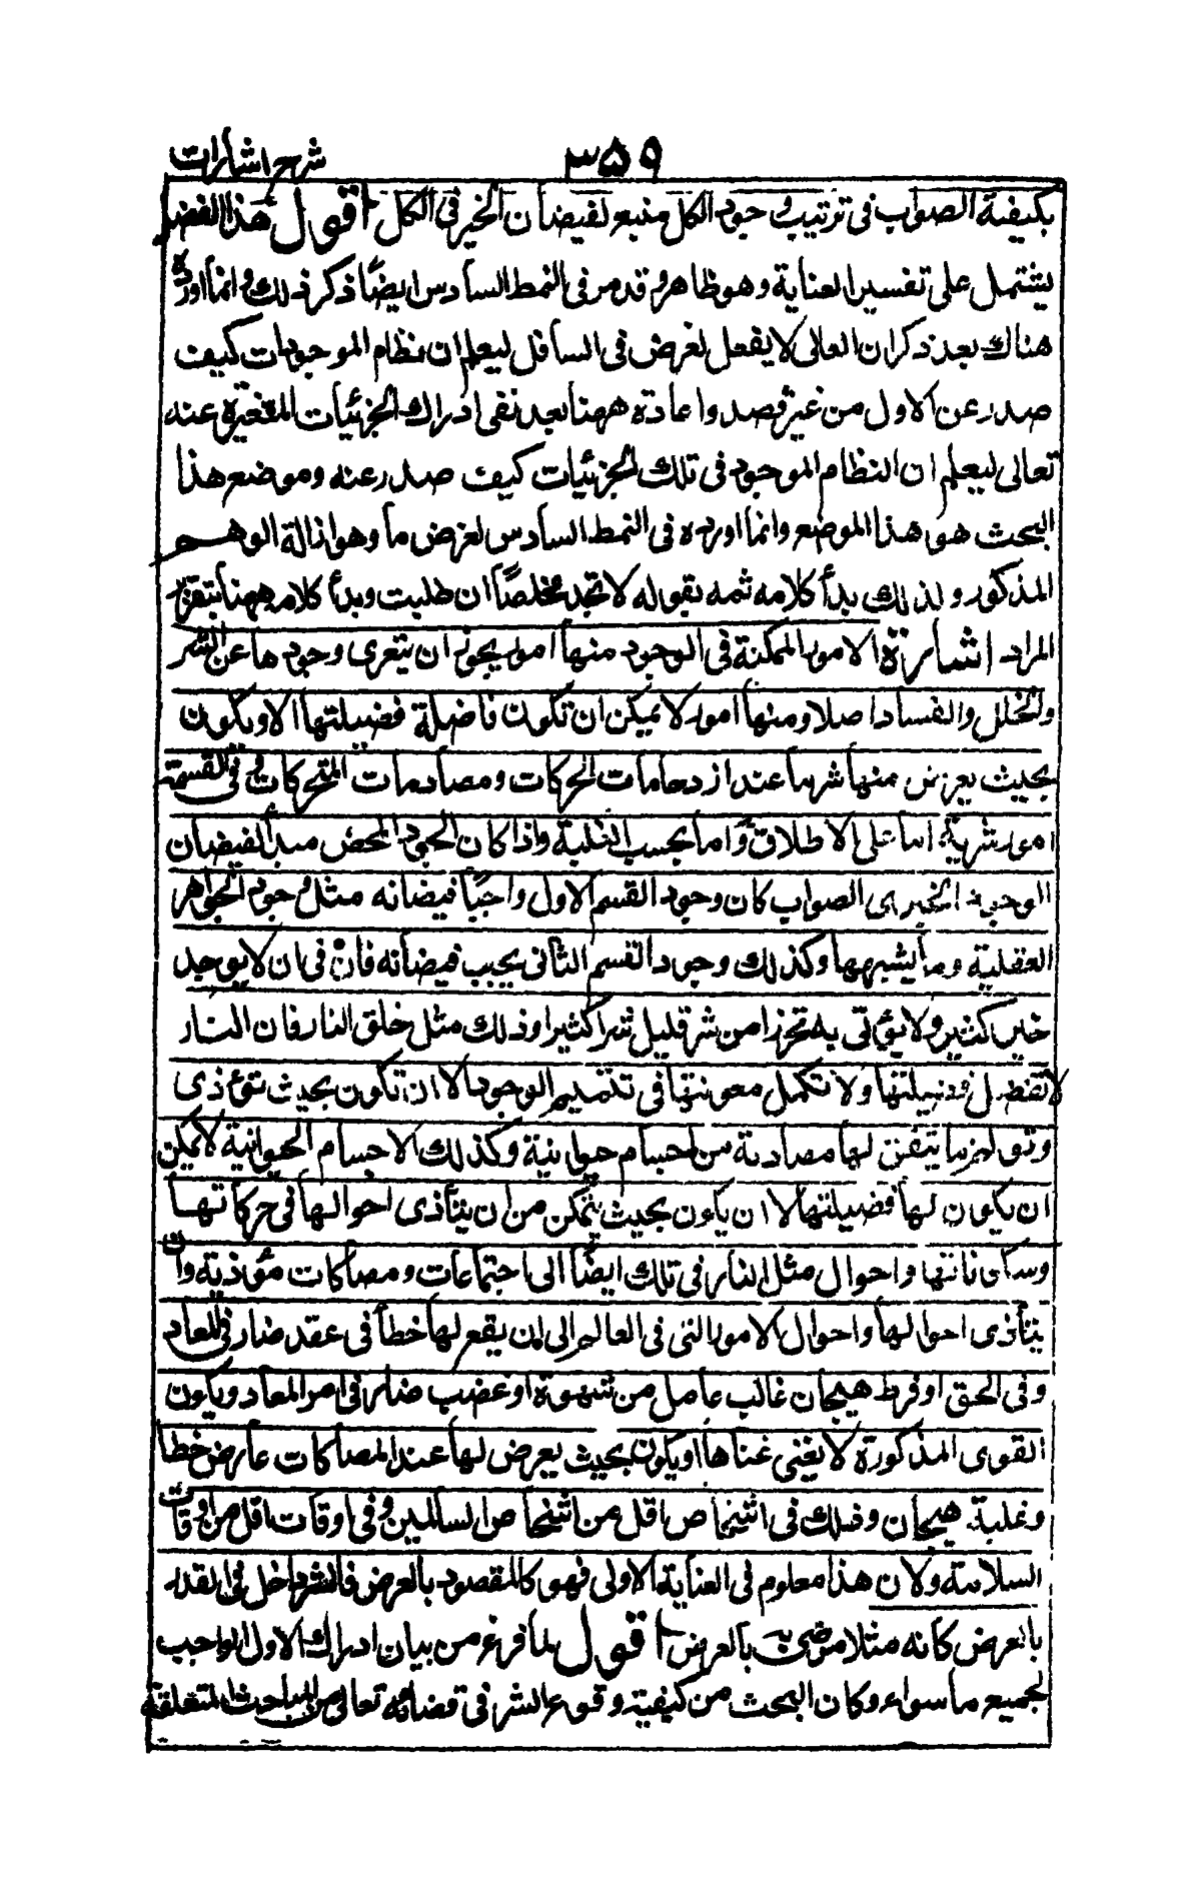 شرح اشارات ٣٥٩
بكيفية الصواب فى ترتيب وجود الكل منبع لفيضان الخير فى الكل اقول هذا الفصل
يشتمل على تفسير العناية وهو ظاهر وقد مر فى النمط السادس ايضًا ذكر ذلك وانما اورده
هناك بعد ذكر ان العالى لا يفعل لغرض فى السافل ليعلم ان نظام الموجودات كيف
صدر عن الاول من غير قصد واعادة ههنا بعد نفى ادراك الجزئيات المتغيرة عنه
تعالى ليعلم ان النظام الموجود فى تلك الجزئيات كيف صدر عنه وموضع هذا
البحث هو هذا الموضع وانما اورده فى النمط السادس لغرض ما وهو ازالة الوهم
المذكور ولذلك بدأ كلامه ثمه بقوله لا تجد مخلصًا ان طلبت وبدأ كلامه ههنا بتقرير
المراد اشارة الامور الممكنة فى الوجود منها امور يجوز ان يتعرى وجودها عن الشر
والخلل والفساد اصلا ومنها امور لا يمكن ان تكون فاضلة فضيلتها الا ويكون
بحيث يعرض منها شر ما عند ازدحامات الحركات ومصادمات المتحركات وفى القسمة
امور شرية اما على الاطلاق واما بحسب الغلبة واذا كان الجود المحض مبدأ لفيضان
الوجود الخيرى الصواب كان وجود القسم الاول واجبًا فيضانه مثل وجود الجواهر
العقلية وما يشبهها وكذلك وجود القسم الثانى يجب فيضانه فان فى ان لا يوجد
خير كثير ولا يؤتى به تحرزا من شر قليل شرا كثيرا وذلك مثل خلق النار فان النار
لا تفضل فضيلتها ولا تكمل معونتها فى تتميم الوجود الا ان تكون بحيث تؤذى
وتؤلم ما يتفق لها مصادمة من اجسام حيوانية وكذلك الاجسام الحيوانية لا يمكن
ان يكون لها فضيلتها الا ان يكون بحيث يتمكن من ان يتأذى احوالها فى حركاتها
وسكناتها واحوال مثل النار فى تلك ايضًا الى اجتماعات ومصاكات مؤذية وان
يتأذى احوالها واحوال الامور التى فى العالم الى ان يقع لها خطأ فى عقد ضار فى المعاد
وفى الحق او فرط هيجان غالب عامل من شهوة او غضب ضار فى امر المعاد ويكون
القوى المذكورة لا يغنى غناها او يكون بحيث يعرض لها عند المصاكات عارض خطا
وغلبة هيجان وذلك فى اشخاص اقل من اشخاص السالمين وفى اوقات اقل من اوقات
السلامة ولان هذا معلوم فى العناية الاولى فهو كالمقصود بالعرض فالشر داخل فى القدر
بالعرض كانه مثلا مرضى به بالعرض اقول لما فرغ من بيان ادراك الاول الواجب
لجميع ما سواه وكان البحث من كيفية وقوع الشر فى قضائه تعالى من المباحث المتعلقة